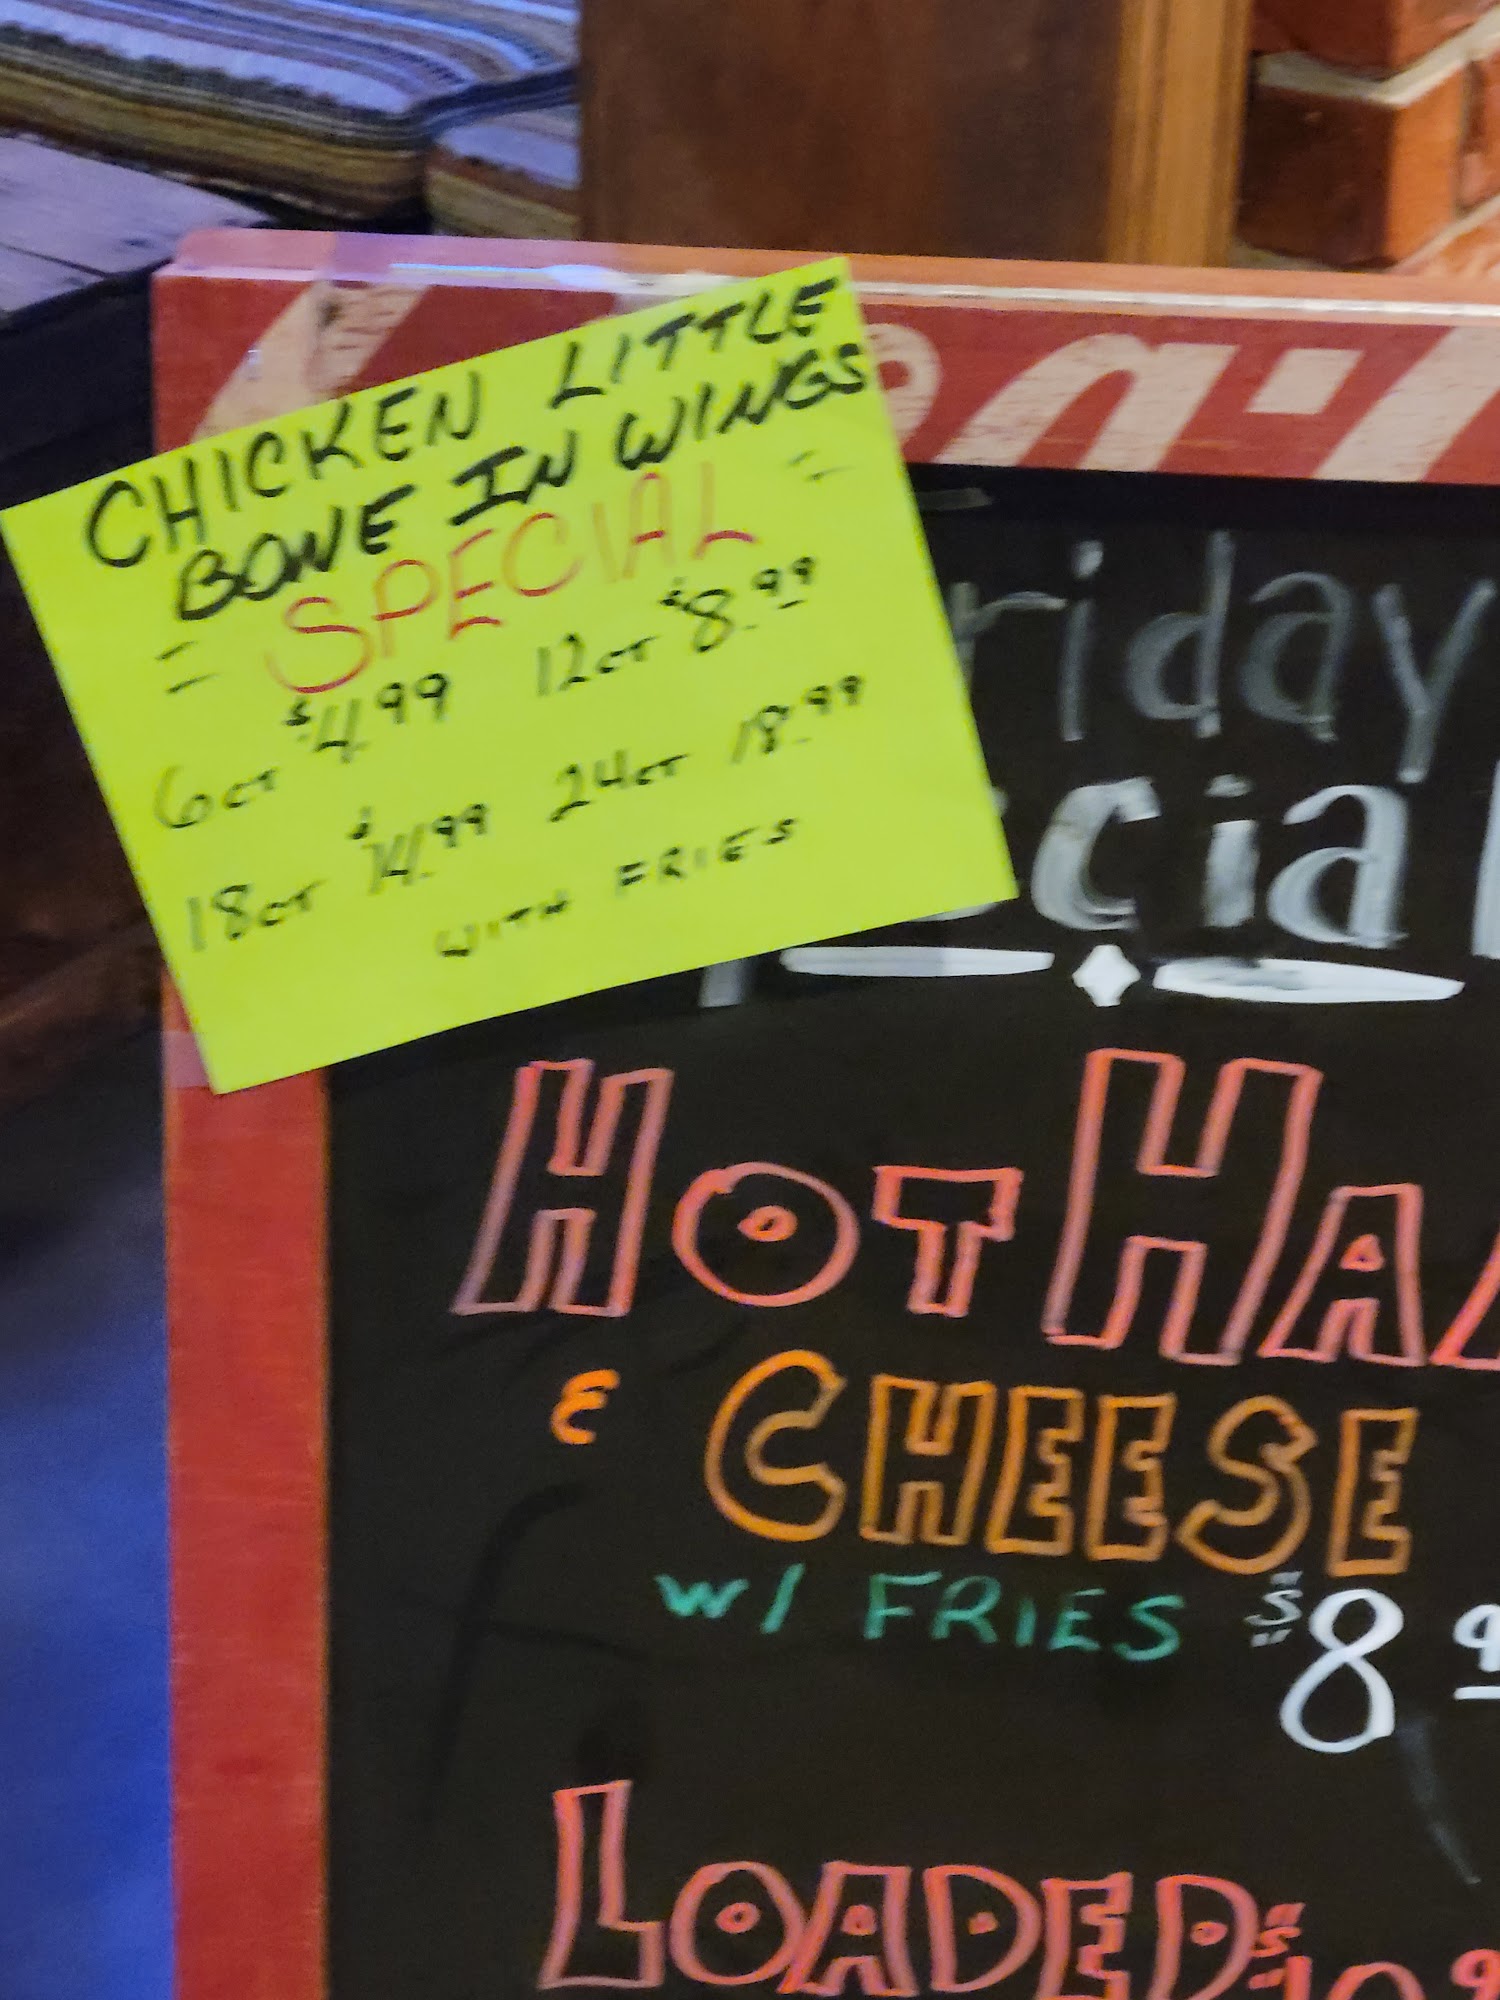 CHICKEN LITTLE
BONE IN WINGS
= SPECIAL =
6CT $4.99 12CT $8.99
18CT $14.99 24CT 18.99
WITH FRIES
HOT HA
& CHEESE
W/ FRIES $8
LOADED $10